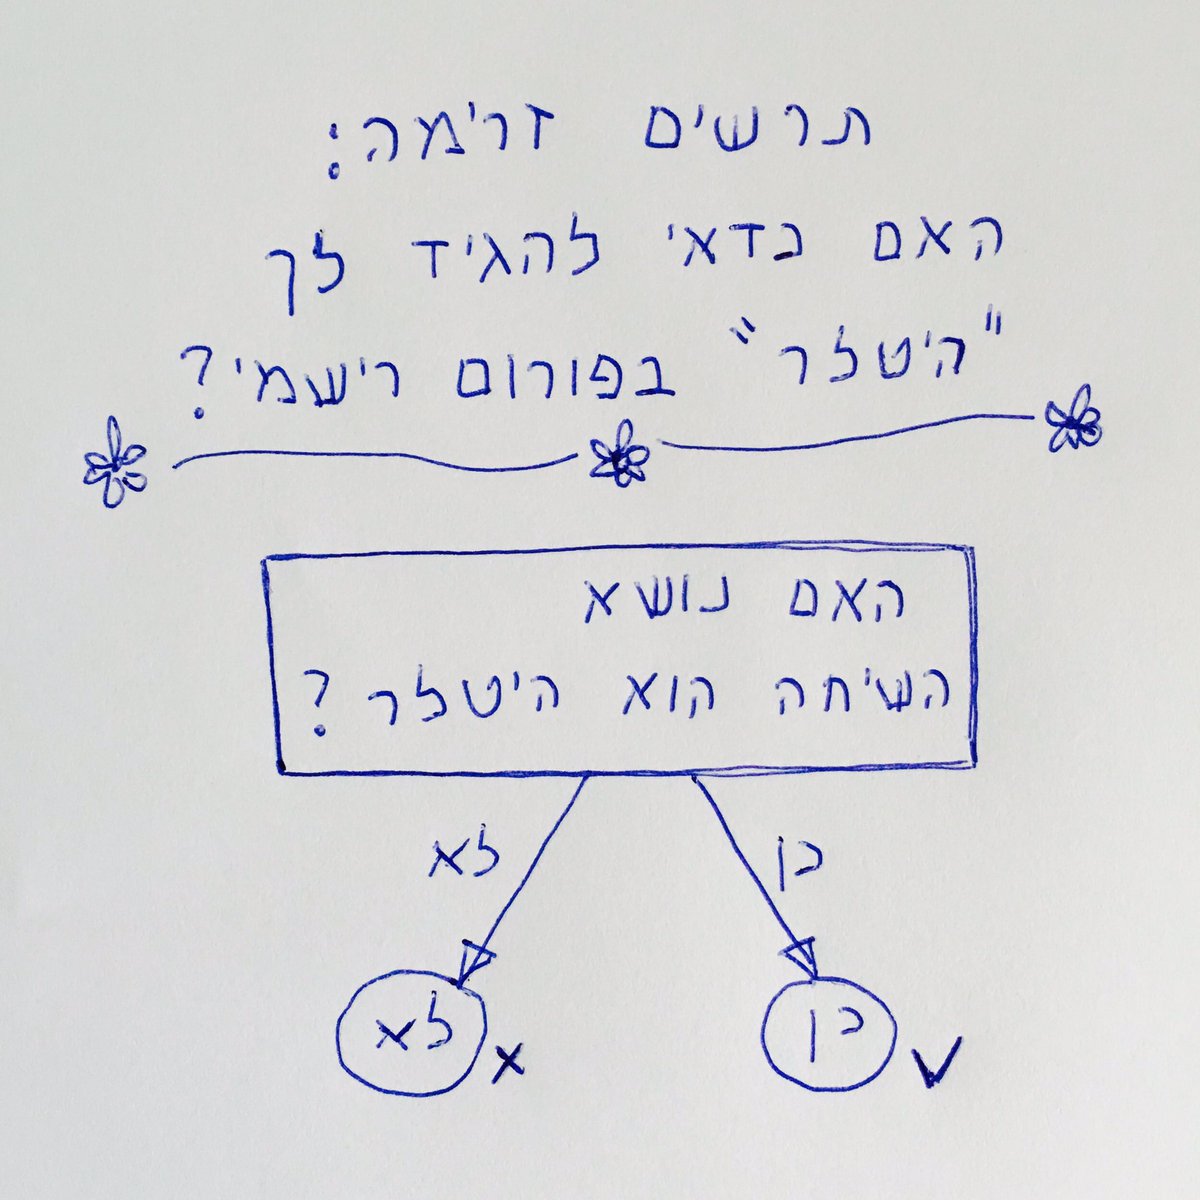 תרשים זרימה:
האם כדאי להגיד לך
"היטלר" בפורום רישמי?
האם נושא
השיחה הוא היטלר?
לא
כן
לא x
כן ✓